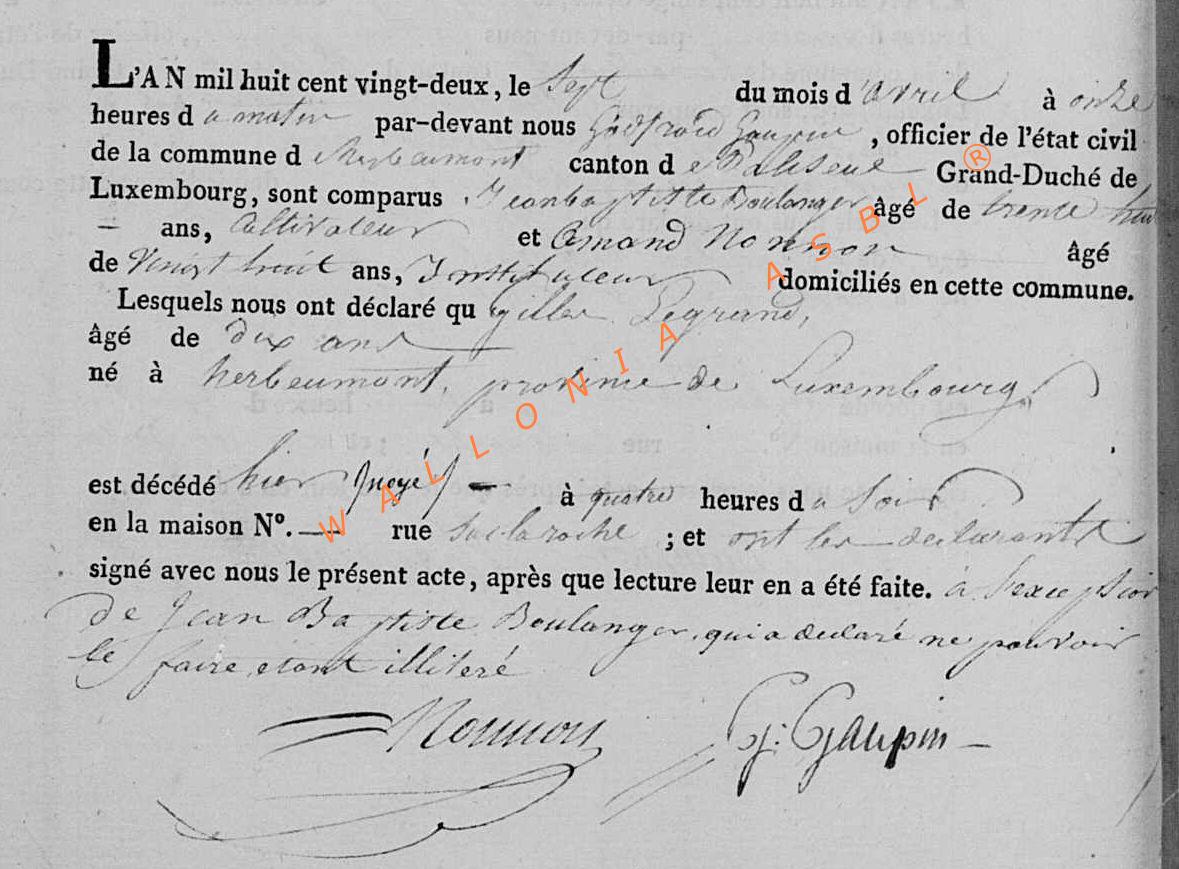 L'AN mil huit cent vingt-deux, le Sept du mois d'avril à onze
heures d u matin par-devant nous Godfroid Gaupin, officier de l'état civil
de la commune d' herbeumont canton d e Paliseul Grand-Duché de
Luxembourg, sont comparus Jean baptiste Boulanger âgé de trente huit
ans, Cultivateur et Amand Nonnon âgé
de Vingt huit ans, Instituteur domiciliés en cette commune.
Lesquels nous ont déclaré qu gilles Legrand,
âgé de dix ans
né à herbeumont, province de Luxembourg,
est décédé hier (noyé) à quatre heures d u Soir
en la maison N°. — rue ; et ont les declarants
signé avec nous le présent acte, après que lecture leur en a été faite. à l'exception
de Jean Baptiste Boulanger, qui a declaré ne pouvoir
le faire, etant illiteré
Nonnon G: Gaupin
WALLONIA ASBL ®